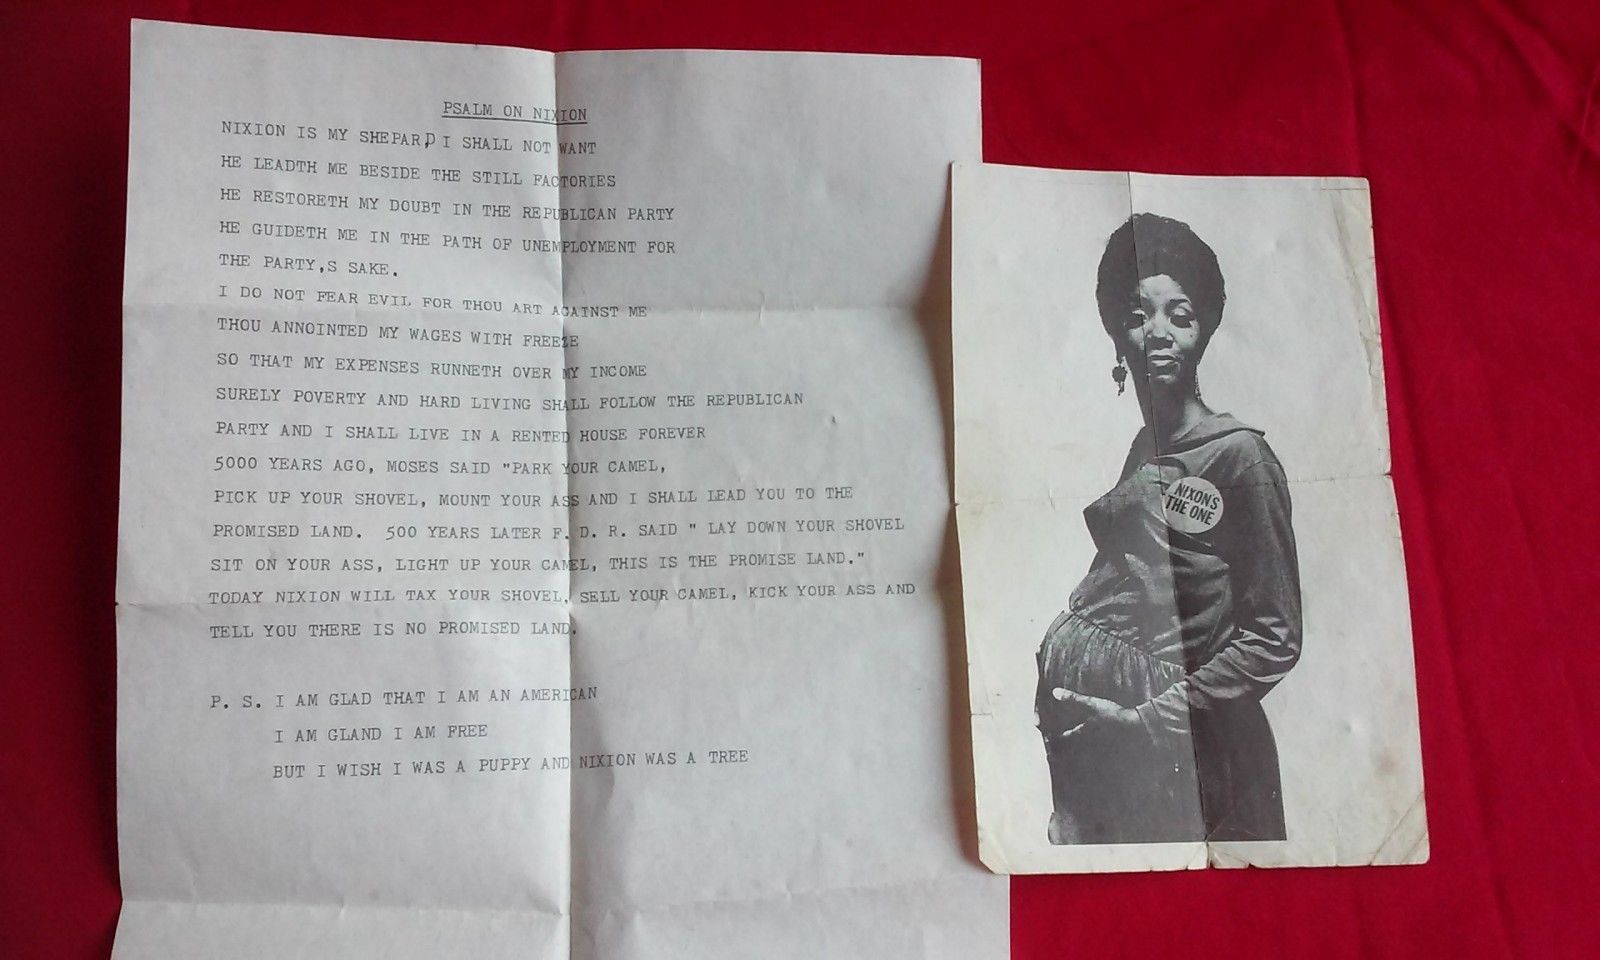 PSALM ON NIXION
NIXION IS MY SHEPARD, I SHALL NOT WANT
HE LEADTH ME BESIDE THE STILL FACTORIES
HE RESTORETH MY DOUBT IN THE REPUBLICAN PARTY
HE GUIDETH ME IN THE PATH OF UNEMPLOYMENT FOR
THE PARTY,S SAKE.
I DO NOT FEAR EVIL FOR THOU ART AGAINST ME
THOU ANNOINTED MY WAGES WITH FREEZE
SO THAT MY EXPENSES RUNNETH OVER MY INCOME
SURELY POVERTY AND HARD LIVING SHALL FOLLOW THE REPUBLICAN
PARTY AND I SHALL LIVE IN A RENTED HOUSE FOREVER
5000 YEARS AGO, MOSES SAID "PARK YOUR CAMEL,
PICK UP YOUR SHOVEL, MOUNT YOUR ASS AND I SHALL LEAD YOU TO THE
PROMISED LAND. 500 YEARS LATER F. D. R. SAID " LAY DOWN YOUR SHOVEL
SIT ON YOUR ASS, LIGHT UP YOUR CAMEL, THIS IS THE PROMISE LAND."
TODAY NIXION WILL TAX YOUR SHOVEL, SELL YOUR CAMEL, KICK YOUR ASS AND
TELL YOU THERE IS NO PROMISED LAND.
P. S. I AM GLAD THAT I AM AN AMERICAN
I AM GLAND I AM FREE
BUT I WISH I WAS A PUPPY AND NIXION WAS A TREE
NIXON'S
THE ONE